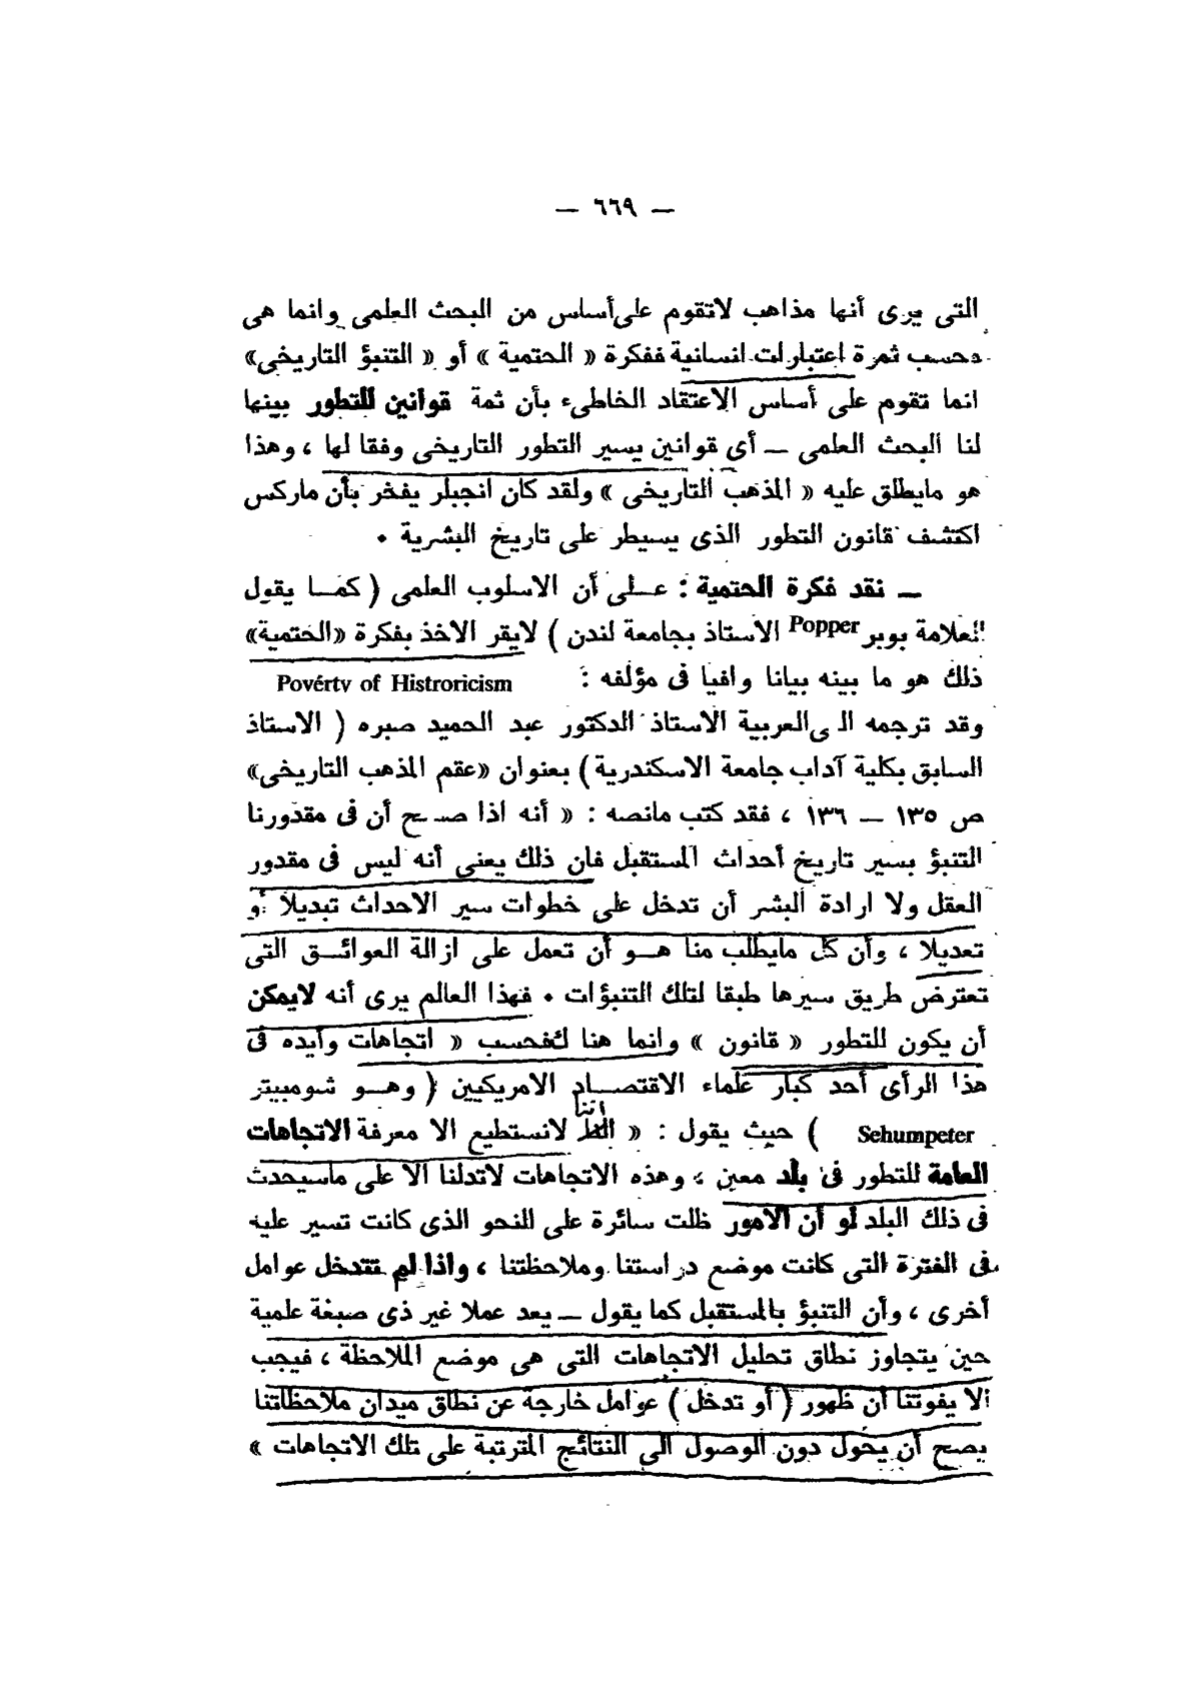 — ٦٦٩ —
التى يرى أنها مذاهب لاتقوم على أساس من البحث العلمى وانما هى
وحسب ثمرة اعتبارات انسانية ففكرة « الحتمية » أو « التنبؤ التاريخى»
انما تقوم على أساس الاعتقاد الخاطىء بأن ثمة قوانين للتطور بينها
لنا البحث العلمى — أى قوانين يسير التطور التاريخى وفقا لها ، وهذا
هو مايطلق عليه « المذهب التاريخى » ولقد كان انجيلر يفخر بأن ماركس
اكتشف قانون التطور الذى يسيطر على تاريخ البشرية .
— نقد فكرة الحتمية : عـلى أن الاسلوب العلمى ( كمـا يقول
العلامة بوبر Popper الاستاذ بجامعة لندن ) لايقر الاخذ بفكرة «الحتمية»
ذلك هو ما بينه بيانا وافيا فى مؤلفه : Povérty of Histroricism
وقد ترجمه الى العربية الاستاذ الدكتور عبد الحميد صبره ( الاستاذ
السابق بكلية آداب جامعة الاسكندرية ) بعنوان «عقم المذهب التاريخى»
ص ١٣٥ — ١٣٦ ، فقد كتب مانصه : « أنه اذا صـح أن فى مقدورنا
التنبؤ بسير تاريخ أحداث المستقبل فان ذلك يعنى أنه ليس فى مقدور
العقل ولا ارادة البشر أن تدخل على خطوات سير الاحداث تبديلا أو
تعديلا ، وأن كل مايطلب منا هـو أن تعمل على ازالة العوائـق التى
تعترض طريق سيرها طبقا لتلك التنبؤات . فهذا العالم يرى أنه لايمكن
أن يكون للتطور « قانون » وانما هنا لك فحسب « اتجاهات وأيده فى
هذا الرأى أحد كبار علماء الاقتصـاد الامريكيين ( وهـو شومبيتر
Sehumpeter ) حيث يقول : « اننا لانستطيع الا معرفة الاتجاهات
العامة للتطور فى بلد معين ، وهذه الاتجاهات لاتدلنا الا على ماسيحدث
فى ذلك البلد لو أن الامور ظلت سائرة على النحو الذى كانت تسير عليه
فى الفترة التى كانت موضع دراستنا وملاحظتنا ، واذا لم تتدخل عوامل
أخرى ، وأن التنبؤ بالمستقبل كما يقول — يعد عملا غير ذى صبغة علمية
حين يتجاوز نطاق تحليل الاتجاهات التى هى موضع الملاحظة ، فيجب
الا يفوتنا أن ظهور ( أو تدخل ) عوامل خارجة عن نطاق ميدان ملاحظاتنا
يصح أن يحول دون الوصول الى النتائج المترتبة على تلك الاتجاهات »